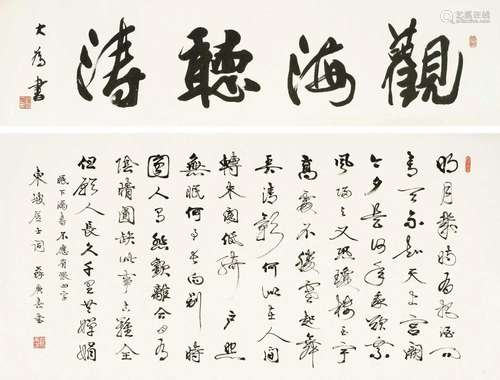 觀海聽濤
大為書
明月幾時有把酒問
青天不知天上宮闕
今夕是何年我欲乘
風歸去又恐瓊樓玉宇
高處不勝寒起舞
弄清影何似在人間
轉朱閣低綺戶照
無眠何事長向別時
圓人有悲歡離合月有
陰晴圓缺此事古難全
但願人長久千里共嬋娟
眠下漏書不應有恨四字
東坡居士詞